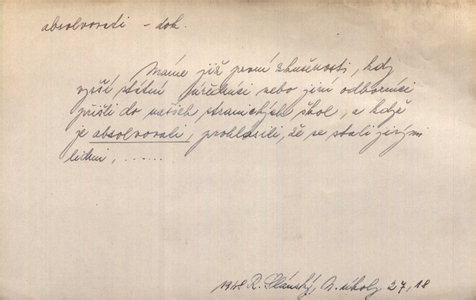 absolvovati - dok.
Máme již první zkušenosti, kdy
vyšší státní úředníci nebo jiní odborníci
přišli do našich stranických škol, a když
je absolvovali, prohlásili, že se stali jinými
lidmi, ......
1948 R. Slánský, O úkoly 27, 18